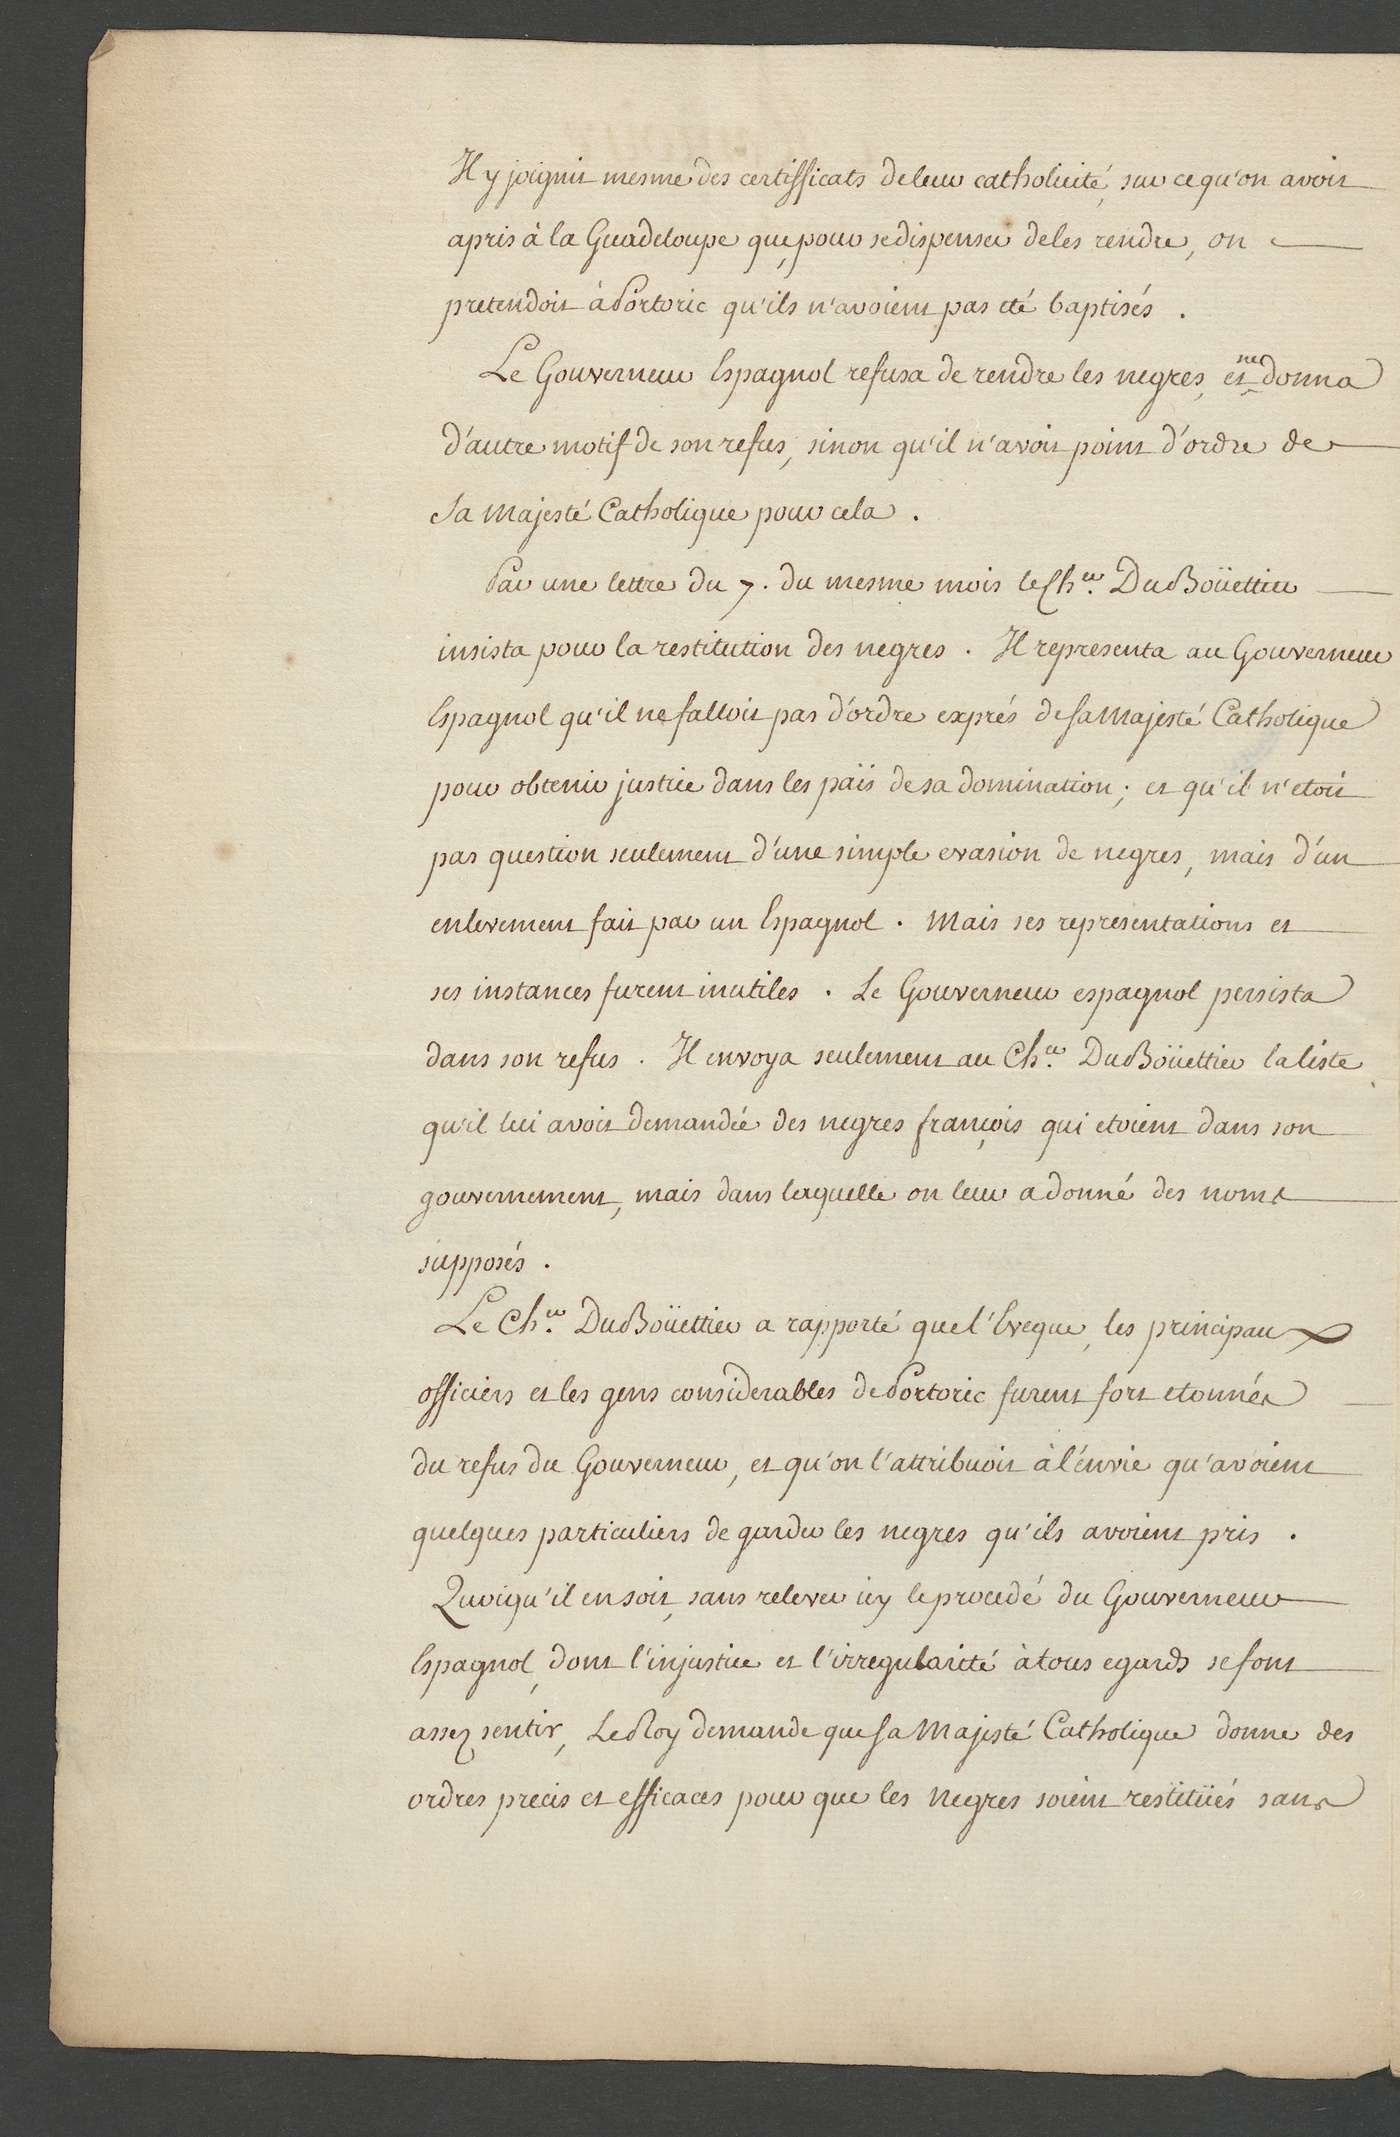 Il y joignit mesme des certifficats de leur catholicité, sur ce qu'on avoit
apris à la Guadeloupe que, pour se dispenser de les rendre, on
pretendoit à Portoric qu'ils n'avoient pas eté baptisés .
Le Gouverneur Espagnol refusa de rendre les negres, et ne donna
d'autre motif de son refus, sinon qu'il n'avoit point d'ordre de
Sa Majesté Catholique pour cela .
Par une lettre du 7. du mesme mois le Ch.er DuBoüettier
insista pour la restitution des negres . Il representa au Gouverneur
Espagnol qu'il ne falloit pas d'ordre exprés de Sa Majesté Catholique
pour obtenir justice dans les païs de sa domination ; et qu'il n'etoit
pas question seulement d'une simple evasion de negres, mais d'un
enlevement fait par un Espagnol . Mais ses representations et
ses instances furent inutiles . Le Gouverneur espagnol persista
dans son refus . Il envoya seulement au Ch.er DuBoüettier la liste
qu'il lui avoit demandée des negres françois qui etoient dans son
gouvernement, mais dans laquelle on leur a donné des noms
supposés .
Le Ch.er DuBoüettier a rapporté que l'Eveque, les principaux
officiers et les gens considerables de Portoric furent fort etonnés
du refus du Gouverneur, et qu'on l'attribuoit à l'envie qu'avoient
quelques particuliers de garder les negres qu'ils avoient pris .
Quoiqu'il en soit, sans relever icy le procedé du Gouverneur
Espagnol, dont l'injustice et l'irregularité à tous egards se font
assez sentir, Le Roy demande que Sa Majesté Catholique donne des
ordres precis et efficaces pour que les Negres soient restitüés sans